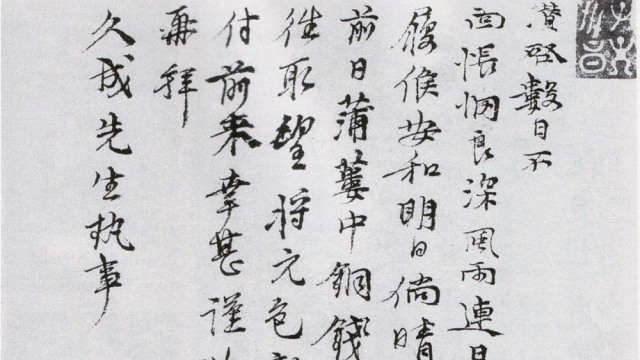 瓚啓數日不
面悵惘良深風雨連日
履候安和明日倘晴
前日蒲蔞中銅錢
往取望將元包
付前來幸甚謹
再拜
久成先生執事